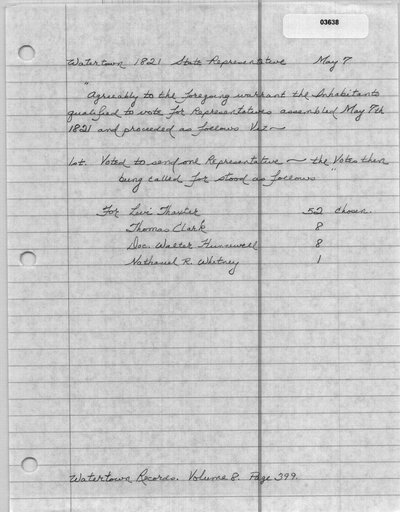 03638
Watertown 1821 State Representative May 7
"Agreeably to the foregoing warrant the Inhabitants
qualified to vote for Representatives assembled May 7th
1821 and proceeded as follows Viz ~
1st. Voted to send one Representative ~ the Votes then
being called for stood as follows"
For Levi Thaxter 52 chosen.
Thomas Clark 8
Doc. Walter Hunnewell 8
Nathaniel R. Whitney 1
Watertown Records. Volume 8. Page 399.